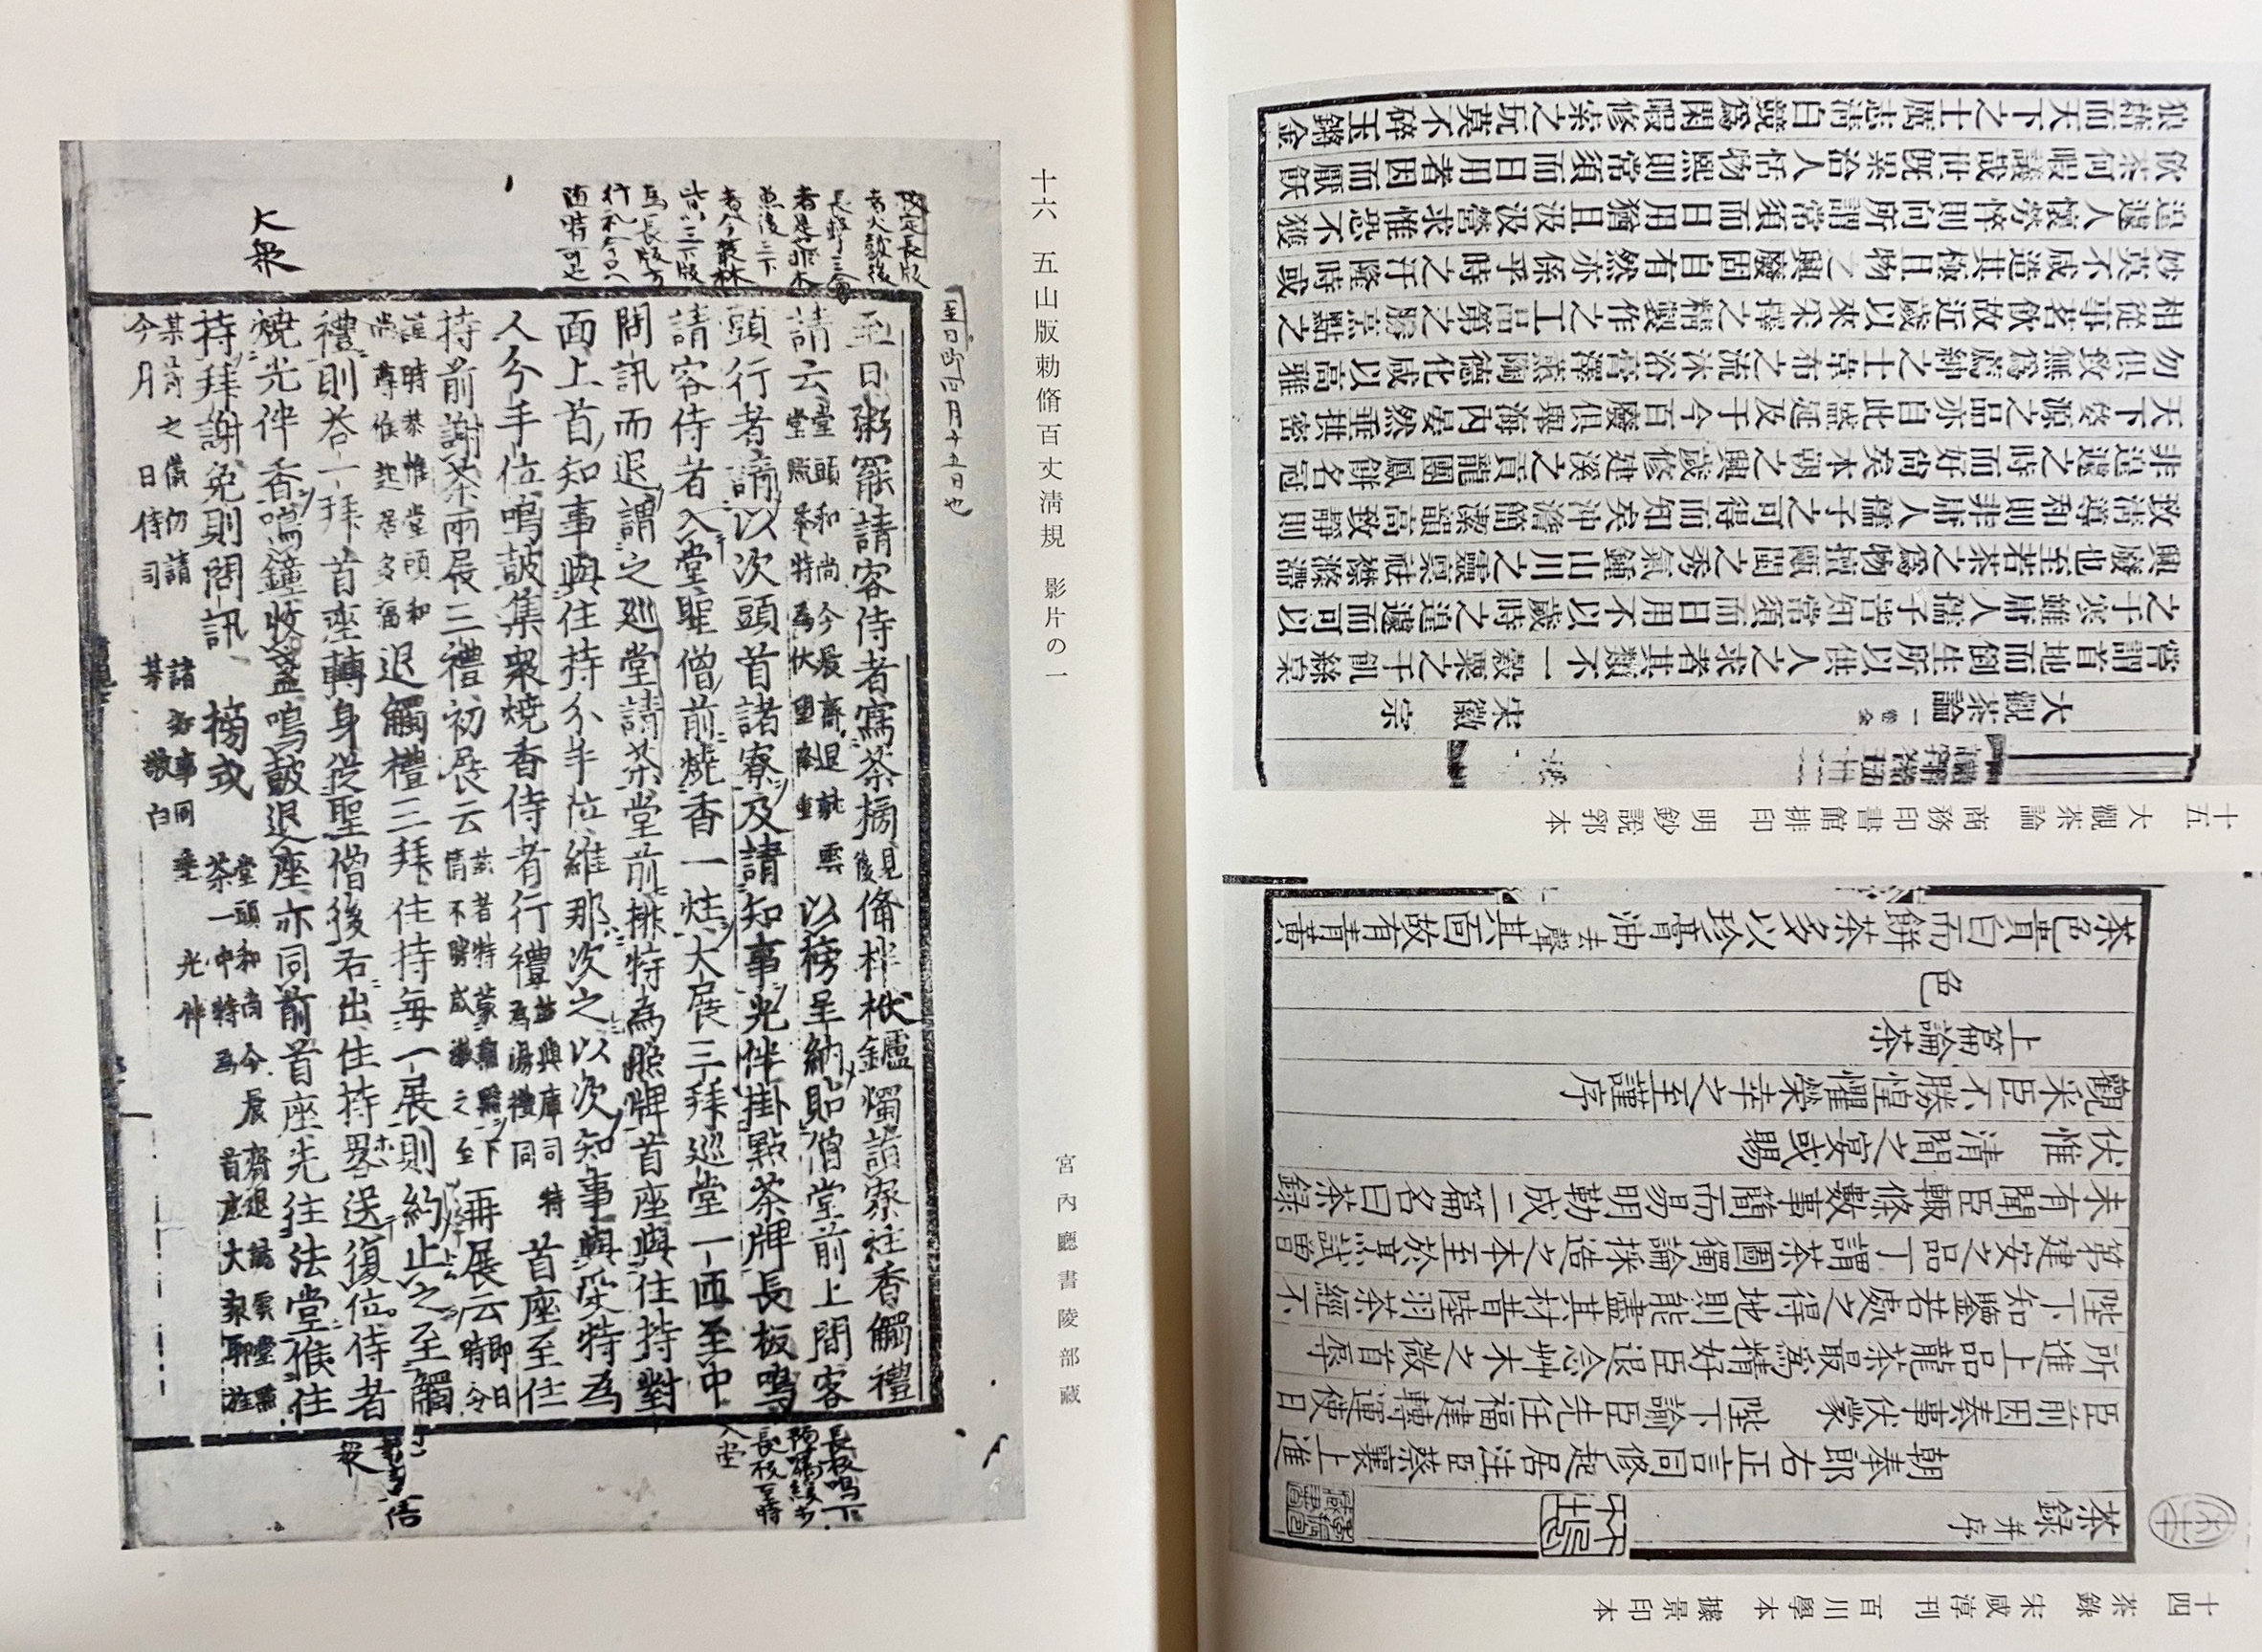 十四 茶錄 宋咸淳刊 百川學本 據景印本
茶録并序
朝奉郎右正言同修起居注臣蔡襄上進
臣前因奏事伏蒙 陛下諭臣先任福建轉運使日
所進上品龍茶最爲精好臣退念艸木之微首辱
陛下知鑒若處之得地則能盡其材昔陸羽茶經不
第建安之品丁謂茶圖獨論採造之本至於烹試曾
未有聞臣輒條數事簡而易明勒成二篇名曰茶録
伏惟 清閒之宴或賜
觀采臣不勝惶懼榮幸之至謹序
上篇論茶
色
茶色貴白而餅茶多以珍膏油去聲其面故有青黃
十五 大觀茶論 商務印書館排印 明鈔說郛本
大觀茶論一卷全 宋徽宗
嘗謂首地而倒生所以供人之求者其類不一穀粟之于飢絲枲
之于寒雖庸人孺子皆知常須而日用不以歲時之遑遽而可以
興廢也至若茶之爲物擅甌閩之秀氣鍾山川之靈稟祛襟滌滯
致清導和則非庸人孺子之可得而知矣沖澹簡潔韻高致靜則
非遑遽之時而好尚矣本朝之興歲修建溪之貢龍團鳳餅名冠
天下壑源之品亦自此盛延及于今百廢俱舉海內晏然垂拱密
勿俱致無爲薦紳之士韋布之流沐浴膏澤薰陶德化咸以高雅
相從事茗飲故近歲以來采擇之精製作之工品第之勝烹點之
妙莫不咸造其極且物之興廢固自有然亦係乎時之汙隆時或
遑遽人懷勞悴則向所謂常須而日用猶且汲汲營求惟恐不獲
飲茶何暇議哉世旣累洽人恬物熙則常須而日用者因而厭飫
狼藉而天下之士厲志清白競爲閑暇修索之玩莫不碎玉鏘金
十六 五山版勅脩百丈淸規 影片の一
宮內廳書陵部藏
至日即四月十五日也
至日粥罷請客侍者寫茶榜見後備柈袱鑪燭詣寮炷香觸禮
請云堂頭和尚今晨齋退就雲堂點茶特爲伏望降重以榜呈納貼僧堂前上間客
頭行者請以次頭首諸寮及請知事光伴掛點茶牌長板鳴
請客侍者入堂聖僧前燒香一炷大展三拜巡堂一匝至中
問訊而退謂之巡堂請茶堂前排特為照牌首座與住持對
面上首知事與住持分手位維那次之以次知事與受特為
人分手位鳴鼓集衆燒香侍者行禮並與庫司特為湯禮同首座至住
持前謝茶兩展三禮初展云茲者特蒙煎點下情不勝感激之至再展云即日時令
謹時恭惟堂頭和尚尊候起居多福退觸禮三拜住持每一展則約止之至觸
禮則荅一拜首座轉身從聖僧後右出住持畧送復位侍者
燒光伴香鳴鐘收盞鳴鼓退座亦同前首座先往法堂候住
持拜謝免則問訊 榜式 堂頭和尚今晨齋退就雲堂點茶一中特爲首座大衆聊旌
某節之儀仍請諸知事同垂光伴
今月 日侍司 某 敬白
大衆
入堂
衆